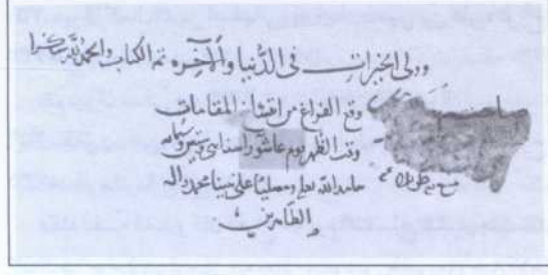 وولى الخيرات فى الدنيا والآخره تم الكتاب والحمد لله شكرا
وقع الفراغ من المقامات
وقت الظهر يوم عاشورا سنه اثنى وستين وستمايه
حامدا لله تعالى ومصليا على نبينا محمد واله
الطاهرين